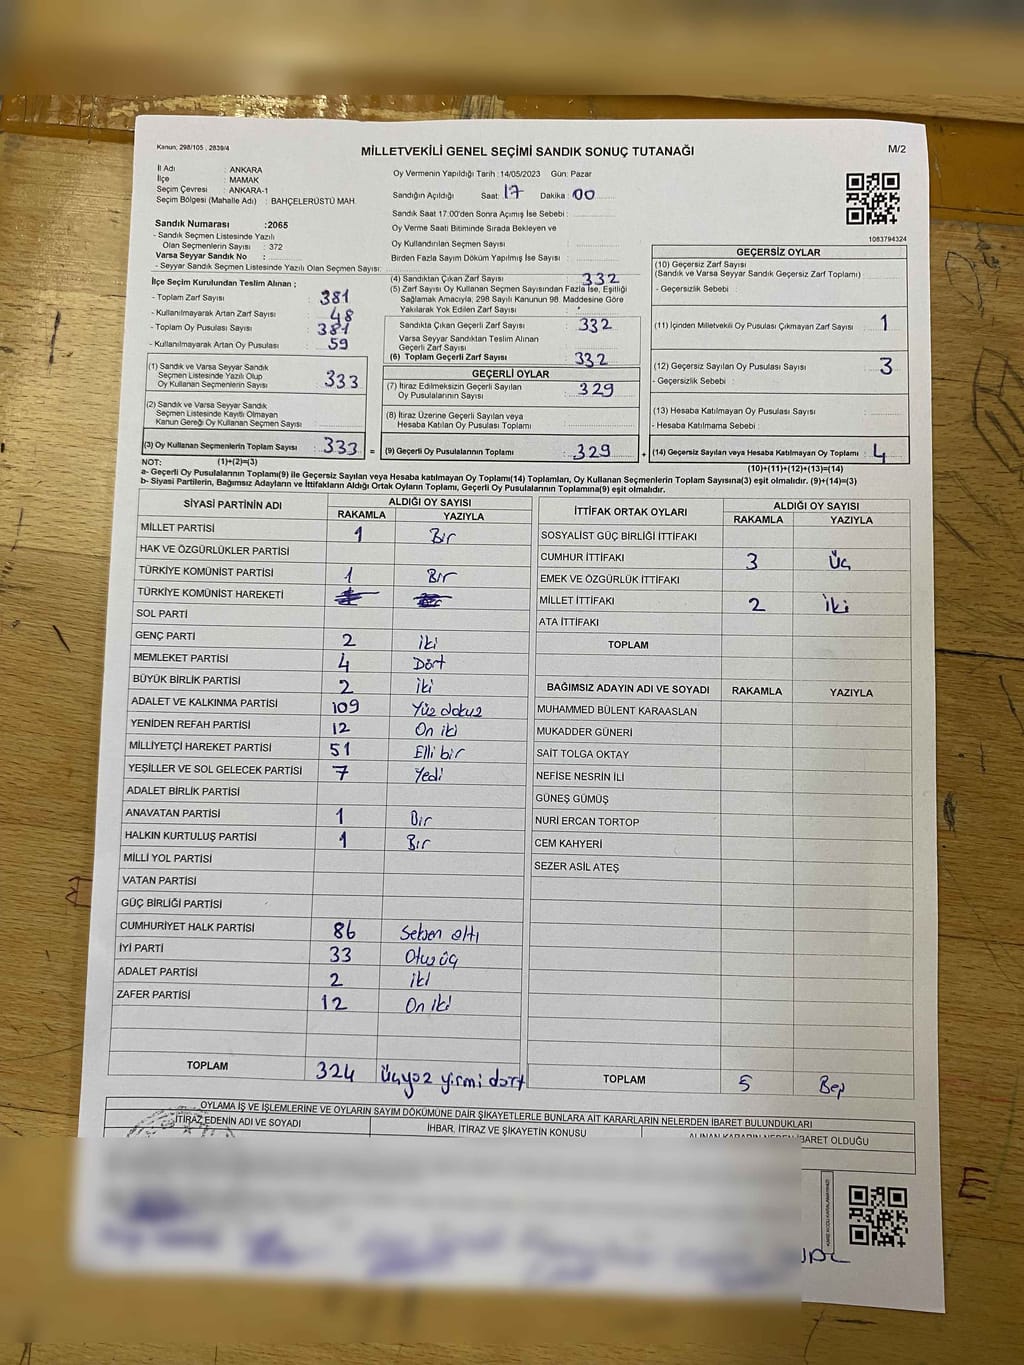 Kanun; 298/105 , 2839/4
MİLLETVEKİLİ GENEL SEÇİMİ SANDIK SONUÇ TUTANAĞI
M/2
İl Adı : ANKARA
İlçe : MAMAK
Seçim Çevresi : ANKARA-1
Seçim Bölgesi (Mahalle Adı) : BAHÇELERÜSTÜ MAH.
Sandık Numarası :2065
- Sandık Seçmen Listesinde Yazılı
Olan Seçmenlerin Sayısı : 372
Varsa Seyyar Sandık No :
- Seyyar Sandık Seçmen Listesinde Yazılı Olan Seçmen Sayısı:
Oy Vermenin Yapıldığı Tarih :14/05/2023 Gün: Pazar
Sandığın Açıldığı Saat: 17 Dakika : 00
Sandık Saat 17:00'den Sonra Açımış İse Sebebi :
Oy Verme Saati Bitiminde Sırada Bekleyen ve
Oy Kullandırılan Seçmen Sayısı :
Birden Fazla Sayım Döküm Yapılmış İse Sayısı :
1083794324
İlçe Seçim Kurulundan Teslim Alınan ;
- Toplam Zarf Sayısı : 381
- Kullanılmayarak Artan Zarf Sayısı : 48
- Toplam Oy Pusulası Sayısı : 381
- Kullanılmayarak Artan Oy Pusulası : 59
(1) Sandık ve Varsa Seyyar Sandık
Seçmen Listesinde Yazılı Olup
Oy Kullanan Seçmenlerin Sayısı : 333
(2) Sandık ve Varsa Seyyar Sandık
Seçmen Listesinde Kayıtlı Olmayan
Kanun Gereği Oy Kullanan Seçmen Sayısı :
(3) Oy Kullanan Seçmenlerin Toplam Sayısı : 333 =
(4) Sandıktan Çıkan Zarf Sayısı : 332
(5) Zarf Sayısı Oy Kullanan Seçmen Sayısından Fazla İse, Eşitliği
Sağlamak Amacıyla; 298 Sayılı Kanunun 98. Maddesine Göre
Yakılarak Yok Edilen Zarf Sayısı :
Sandıkta Çıkan Geçerli Zarf Sayısı : 332
Varsa Seyyar Sandıktan Teslim Alınan
Geçerli Zarf Sayısı :
(6) Toplam Geçerli Zarf Sayısı : 332
GEÇERLİ OYLAR
(7) İtiraz Edilmeksizin Geçerli Sayılan
Oy Pusulalarının Sayısı : 329
(8) İtiraz Üzerine Geçerli Sayılan veya
Hesaba Katılan Oy Pusulası Toplamı :
(9) Geçerli Oy Pusulalarının Toplamı : 329 +
GEÇERSİZ OYLAR
(10) Geçersiz Zarf Sayısı
(Sandık ve Varsa Seyyar Sandık Geçersiz Zarf Toplamı) :
- Geçersizlik Sebebi :
(11) İçinden Milletvekili Oy Pusulası Çıkmayan Zarf Sayısı : 1
(12) Geçersiz Sayılan Oy Pusulası Sayısı : 3
- Geçersizlik Sebebi :
(13) Hesaba Katılmayan Oy Pusulası Sayısı :
- Hesaba Katılmama Sebebi :
(14) Geçersiz Sayılan veya Hesaba Katılmayan Oy Toplamı : 4
NOT: (1)+(2)=(3) (10)+(11)+(12)+(13)=(14)
a- Geçerli Oy Pusulalarının Toplamı(9) ile Geçersiz Sayılan veya Hesaba katılmayan Oy Toplamı(14) Toplamları, Oy Kullanan Seçmenlerin Toplam Sayısına(3) eşit olmalıdır. (9)+(14)=(3)
b- Siyasi Partilerin, Bağımsız Adayların ve İttifakların Aldığı Ortak Oyların Toplamı, Geçerli Oy Pusulalarının Toplamına(9) eşit olmalıdır.
SİYASİ PARTİNİN ADI ALDIĞI OY SAYISI
RAKAMLA YAZIYLA
MİLLET PARTİSİ 1 Bir
HAK VE ÖZGÜRLÜKLER PARTİSİ
TÜRKİYE KOMÜNİST PARTİSİ 1 Bir
TÜRKİYE KOMÜNİST HAREKETİ
SOL PARTİ
GENÇ PARTİ 2 iki
MEMLEKET PARTİSİ 4 Dört
BÜYÜK BİRLİK PARTİSİ 2 iki
ADALET VE KALKINMA PARTİSİ 109 Yüz dokuz
YENİDEN REFAH PARTİSİ 12 On iki
MİLLİYETÇİ HAREKET PARTİSİ 51 Elli bir
YEŞİLLER VE SOL GELECEK PARTİSİ 7 Yedi
ADALET BİRLİK PARTİSİ
ANAVATAN PARTİSİ 1 Bir
HALKIN KURTULUŞ PARTİSİ 1 Bir
MİLLİ YOL PARTİSİ
VATAN PARTİSİ
GÜÇ BİRLİĞİ PARTİSİ
CUMHURİYET HALK PARTİSİ 86 Seksen altı
İYİ PARTİ 33 Otuz üç
ADALET PARTİSİ 2 iki
ZAFER PARTİSİ 12 On iki
TOPLAM 324 Üçyüz yirmi dört
İTTİFAK ORTAK OYLARI ALDIĞI OY SAYISI
RAKAMLA YAZIYLA
SOSYALİST GÜÇ BİRLİĞİ İTTİFAKI
CUMHUR İTTİFAKI 3 Üç
EMEK VE ÖZGÜRLÜK İTTİFAKI
MİLLET İTTİFAKI 2 İki
ATA İTTİFAKI
TOPLAM
BAĞIMSIZ ADAYIN ADI VE SOYADI RAKAMLA YAZIYLA
MUHAMMED BÜLENT KARAASLAN
MUKADDER GÜNERİ
SAİT TOLGA OKTAY
NEFİSE NESRİN İLİ
GÜNEŞ GÜMÜŞ
NURİ ERCAN TORTOP
CEM KAHYERİ
SEZER ASİL ATEŞ
TOPLAM 5 Beş
OYLAMA İŞ VE İŞLEMLERİNE VE OYLARIN SAYIM DÖKÜMÜNE DAİR ŞİKAYETLERLE BUNLARA AİT KARARLARIN NELERDEN İBARET BULUNDUKLARI
İTİRAZ EDENİN ADI VE SOYADI İHBAR, İTİRAZ VE ŞİKAYETİN KONUSU ALINAN KARARIN NEDEN İBARET OLDUĞU
E